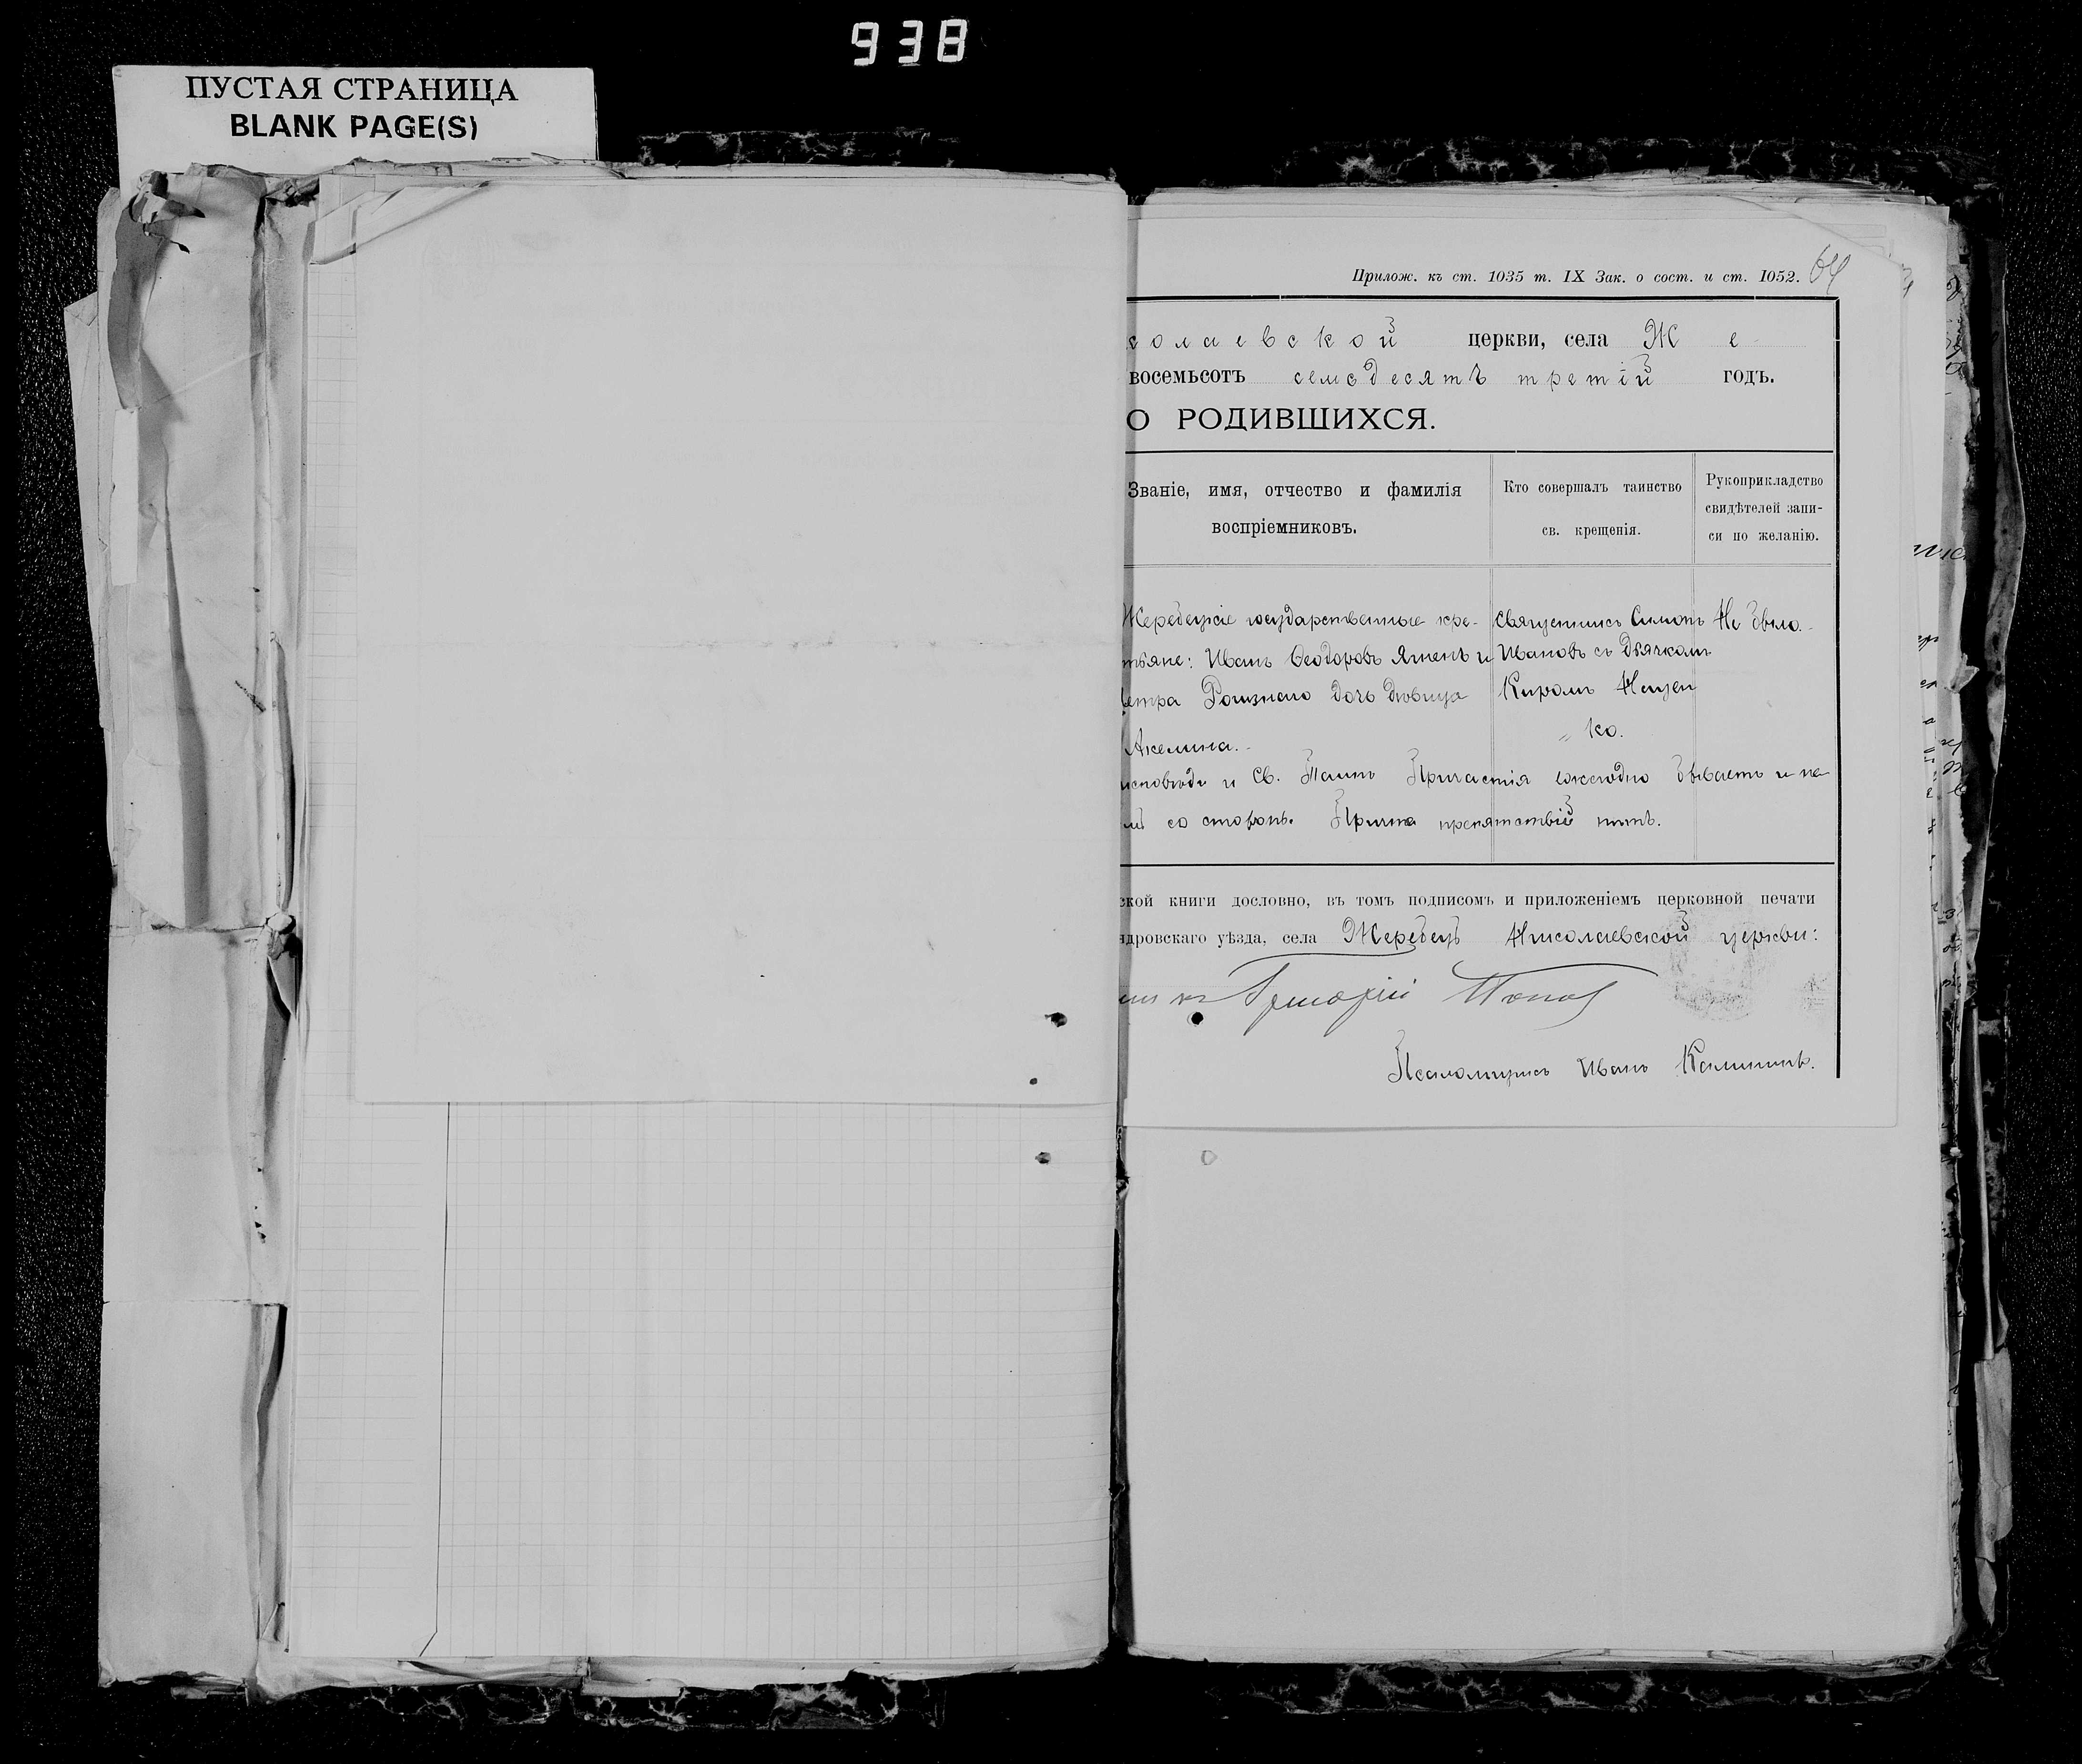 938
ПУСТАЯ СТРАНИЦА
BLANK PAGE(S)
Прилож. къ ст. 1035 т. IX Зак. о сост. и ст. 1052. 64
колаевской церкви, села Же
восемьсотъ семьдесятъ третій годъ.
О РОДИВШИХСЯ.
Званіе, имя, отчество и фамилія воспріемниковъ.
Кто совершалъ таинство св. крещенія.
Рукоприкладство свидѣтелей записи по желанію.
Жеребецкіе государственные кре-
тьяне: Иванъ Ѳеодоровъ и
Петра дочь дѣвица
Акелина.
Священникъ Симонъ
Ивановъ съ Дьячкомъ
Киромъ Нещен
ко.
Не было.
исповѣди и Св. Таинъ Причастія ежегодно бываетъ и
со стороны Причта препятствій нѣтъ.
ской книги дословно, въ томъ подписомъ и приложеніемъ церковной печати
ндровскаго уѣзда, села Жеребецъ Николаевской церкви:
Григорій Попов
Псаломщикъ Иванъ Калининъ.